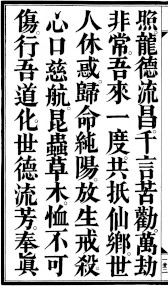 照龍德流昌千言苦勸萬劫
非常吾來一度共扺仙鄉世
人休惑歸命純陽放生戒殺
心口慈航昆蟲草木恤不可
傷行吾道化世德流芳奉眞